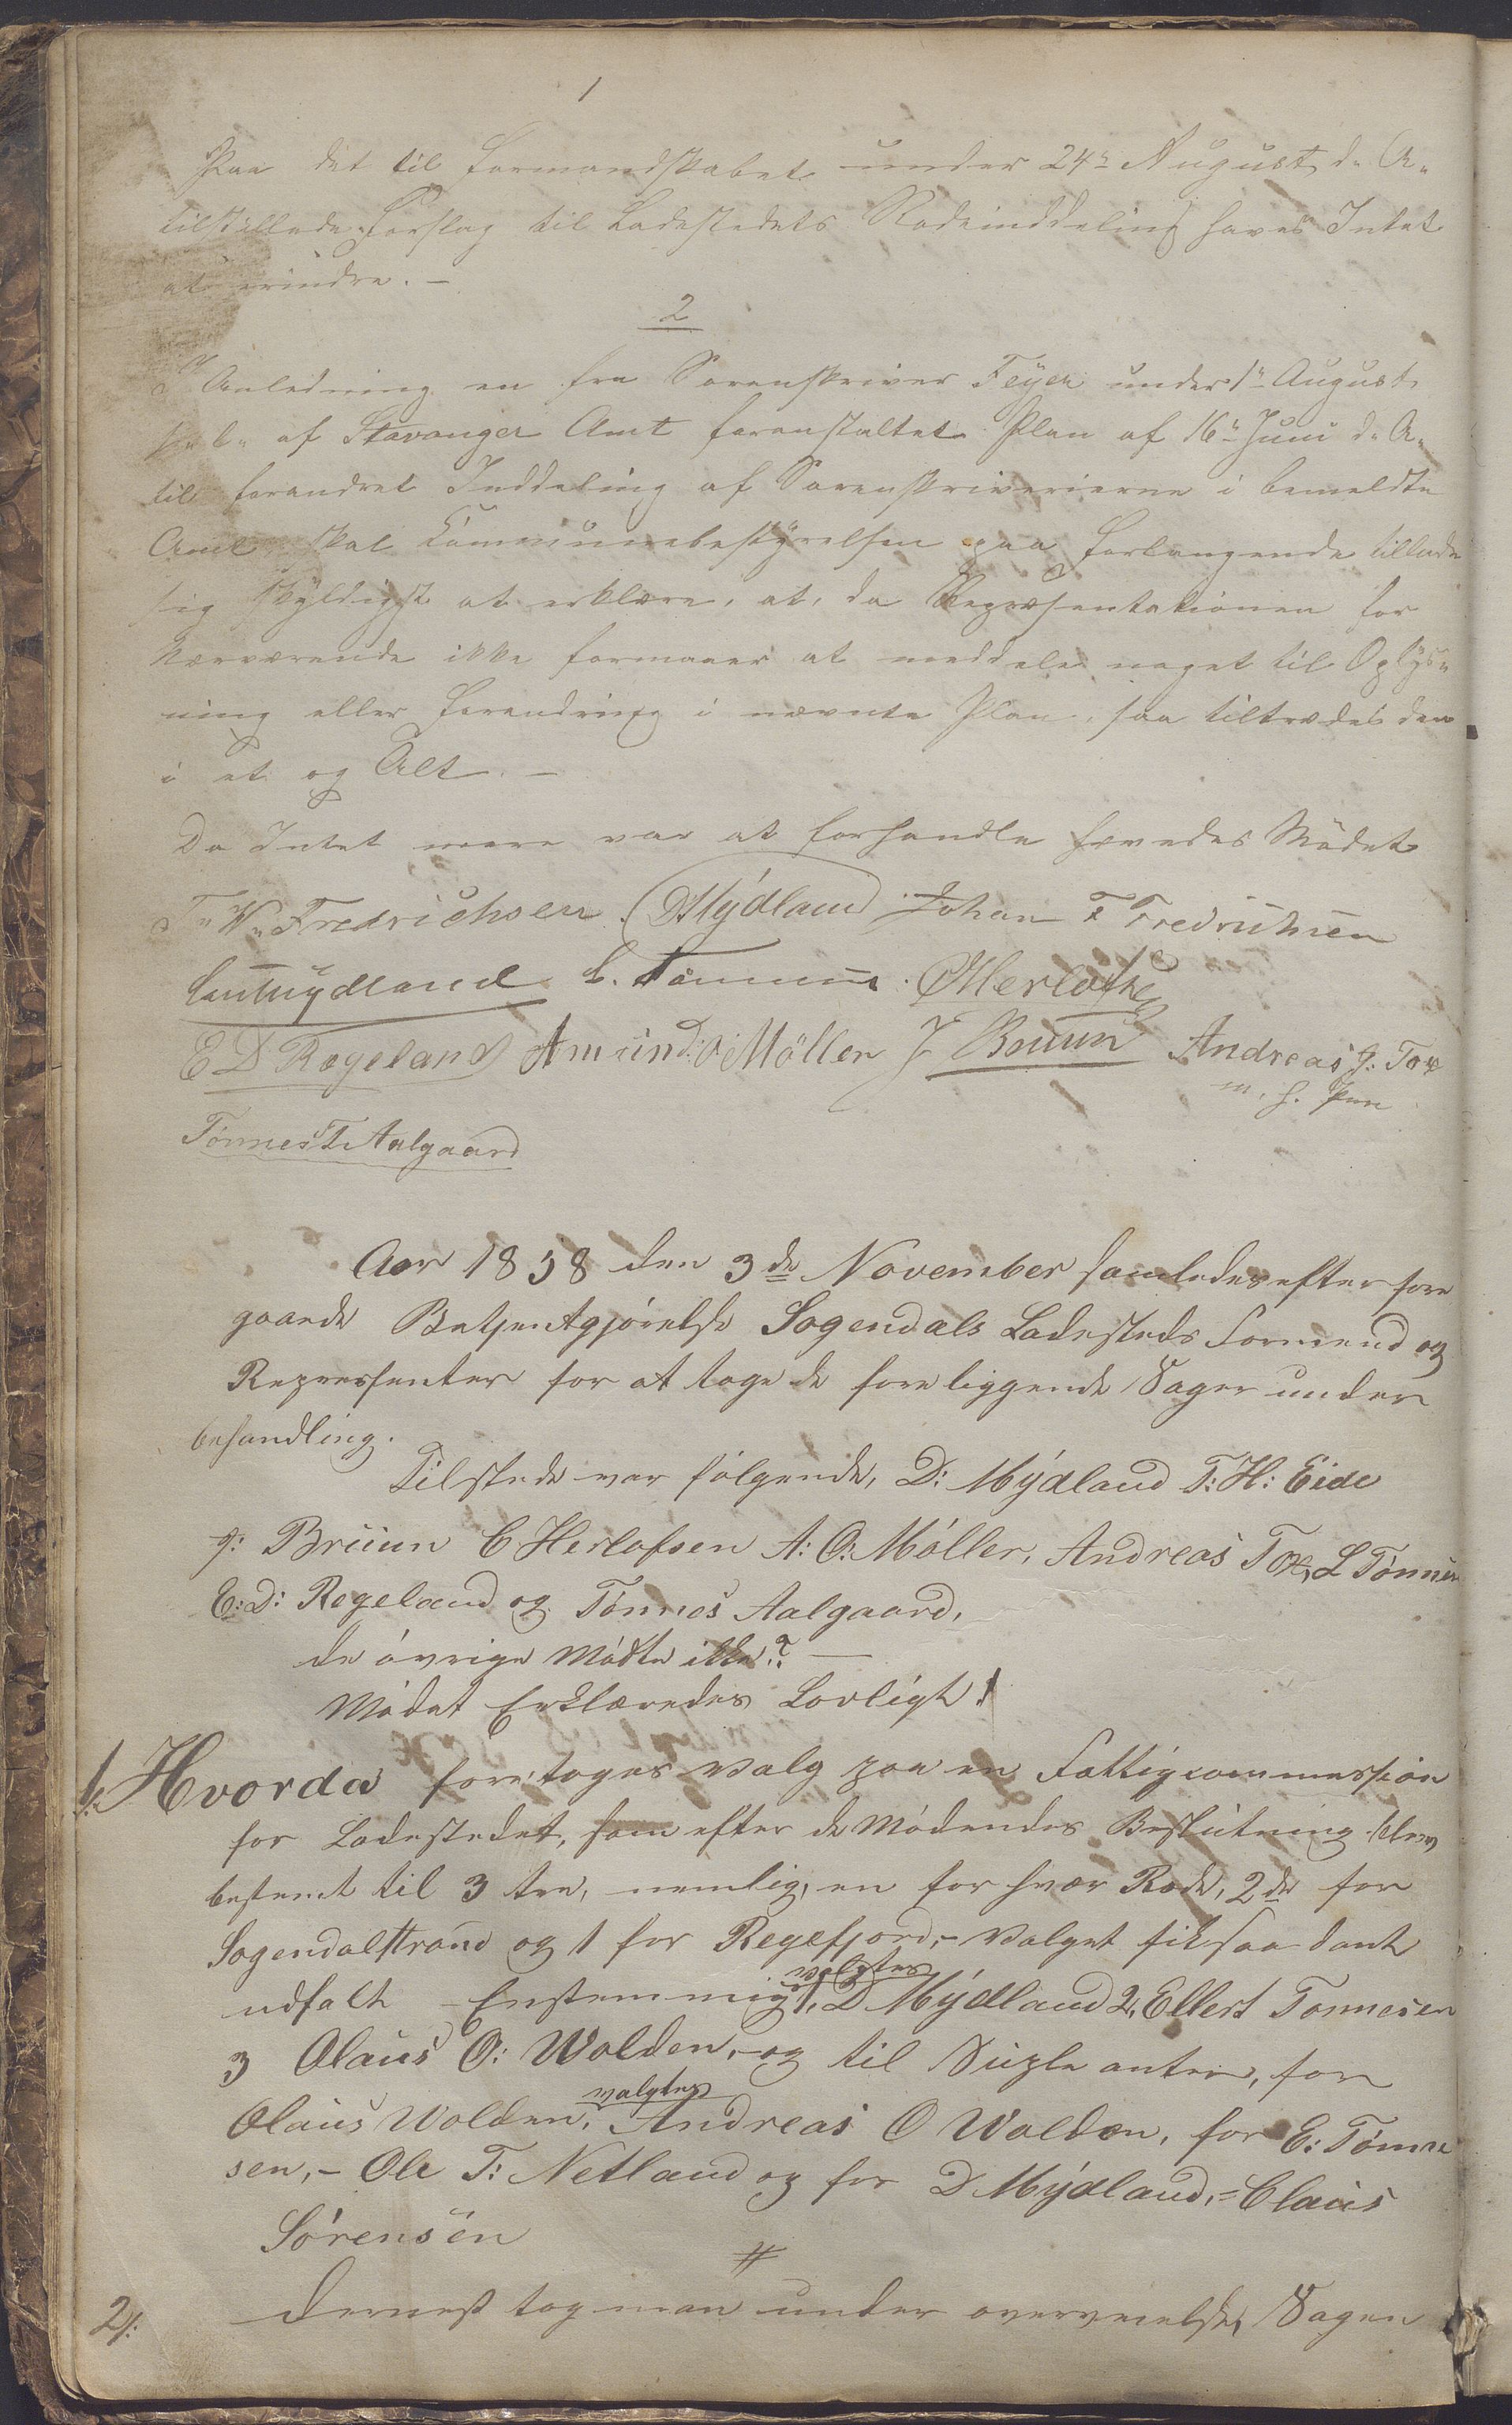 1
Paa det til Formandskabet under 24" August d. A.
tilstillede Forslag til Ladestedets Rodeinddeling haves Intet
at erindre. –
2
I Anledning en fra Sorenskriver Feyer under 1" August
af Stavanger Amt foranstaltet Plan af 16" Juni d. A.
til forandret Inddeling af Sorenskriverierne i bemeldte
Amt skal Communebestyrelsen paa Forlangende tillade
sig skyldigst at erklære, at, da Repræsentationen for
Nærværende ikke formaaer at meddele noget til Oplys-
ning eller Forandring i nævnte Plan, saa tiltrædes den
i et og Alt. –
Da Intet mere var at forhandle hævedes Mødet
T. W. Fredrichsen DMýdland Johan F Fredrichsen
L. Tönnesen CHerlofsen
E D Regeland Amund O Möller J Bruun Andreas J: Tox
m. f. Pen
Tönnes T. Aalgaard
Aar 1858 den 3de November samledes efter fore
gaaende Bekjentgjørelse Sogendals Ladesteds Formend og
Representer for at tage de foreliggende Sager under
behandling.
Tilstede var følgende, D: Mýdland T: H: Eide
J: Bruun C Herlofsen A: O: Möller, Andreas Tox, L Tönnesen
E: D: Regeland og Tönnes Aalgaard,
de óvrige Módte ikke.
Módet Erklæredes Lovligt!
1: Hvorda foretoges valg paa en Fattigcommession
for Ladestedet, som efter de Módendes Beslutning blev
bestemt til 3 tre, nemlig, en for hver Rode, 2de for
Sogendalstrand og 1 for Regefjord, – Valget fik saadant
udfalt – Enstemmigt valgtes 1, D Mýdland 2, Ellert Tonnesen
3 Olaus O: Wolden, – og til Supleanter, for
Olaus Wolden, valgtes Andreas O Wolden, for E: Tönne
sen, – Ole T: Netland og for D Mýdland, = Claus
Sórensen
#
2/: Dernest tog man under overveielse, Sagen